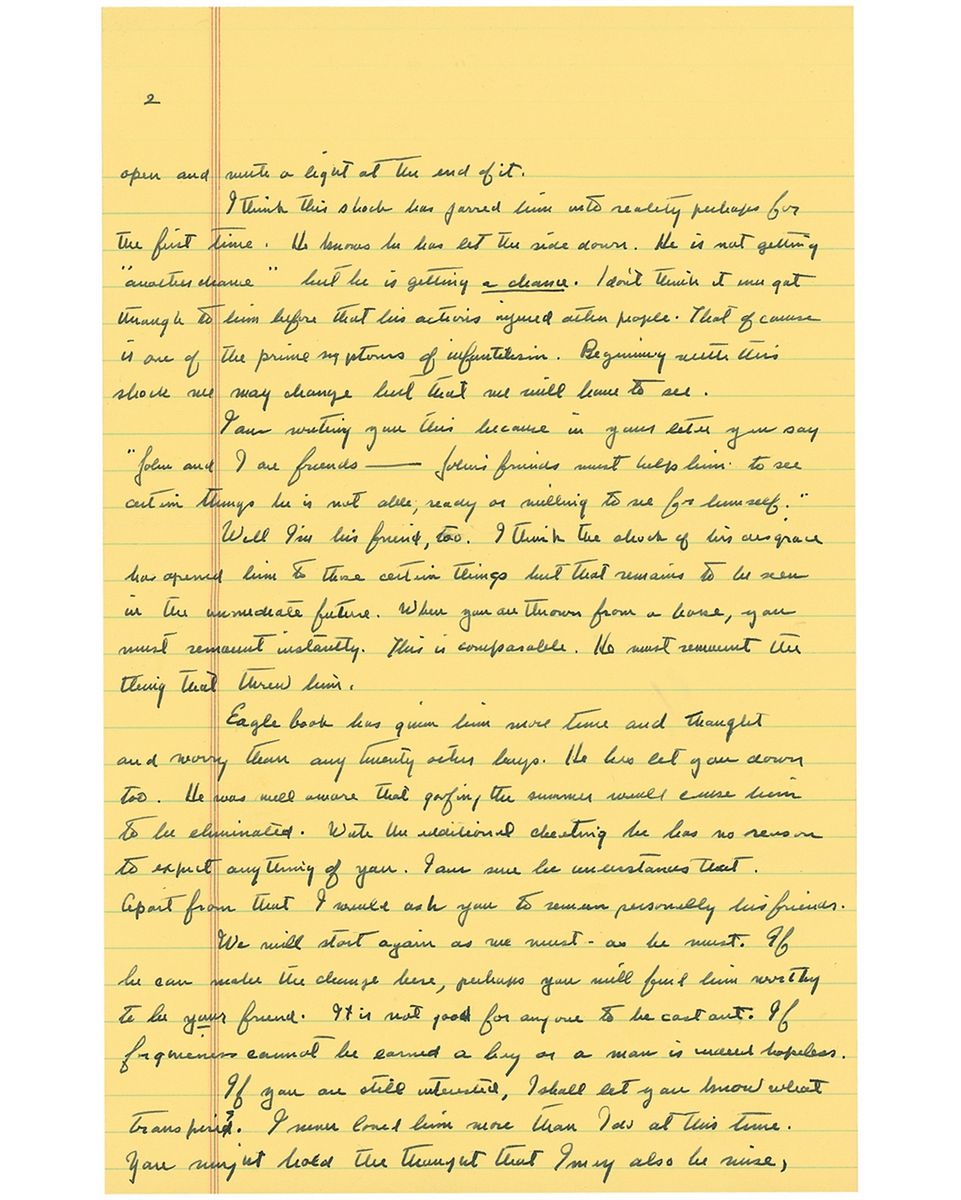 2
open and with a light at the end of it.
I think this shock has jarred him into reality perhaps for
the first time. He knows he has let the side down. He is not getting
"another chance" but he is getting a chance. I don't think it ever got
through to him before that his actions injured other people. That of course
is one of the prime symptoms of infantilism. Beginning with this
shock we may change but that we will have to see.
I am writing you this because in your letter you say
"John and I are friends —— John's friends must help him to see
certain things he is not able, ready or willing to see for himself."
Well I'm his friend, too. I think the shock of his disgrace
has opened him to those certain things but that remains to be seen
in the immediate future. When you are thrown from a horse, you
must remount instantly. This is comparable. He must remount the
thing that threw him.
Eaglebrook has given him more time and thought
and worry than any twenty other boys. He has let you down
too. He was well aware that goofing the summer would cause him
to be eliminated. With the additional cheating he has no reason
to expect anything of you. I am sure he understands that.
Apart from that I would ask you to remain personally his friends.
We will start again as we must - as he must. If
he can make the change here, perhaps you will find him worthy
to be your friend. It is not good for anyone to be cast out. If
forgiveness cannot be earned a boy or a man is indeed hopeless.
If you are still interested, I shall let you know what
transpires. I never loved him more than I do at this time.
You might hold the thought that I may also be wise,